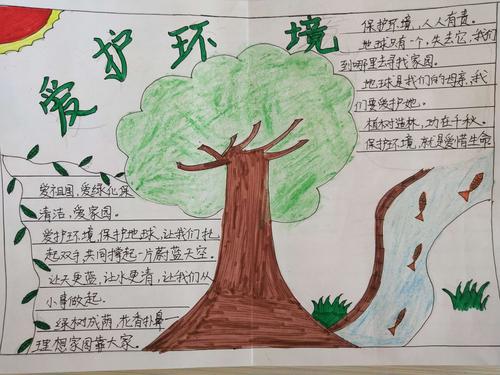 爱护环境
保护环境，人人有责。
地球只有一个，失去它，我们
到哪里去寻找家园。
地球是我们的母亲，我
们要爱护她。
植树造林，功在千秋。
保护环境，就是爱惜生命
爱祖国，爱绿化保
清洁，爱家园。
爱护环境，保护地球，让我们扎
起双手共同撑起一片蔚蓝天空。
让天更蓝，让水更清，让我们从
小事做起。
绿树成荫，花香扑鼻一
理想家园靠大家。